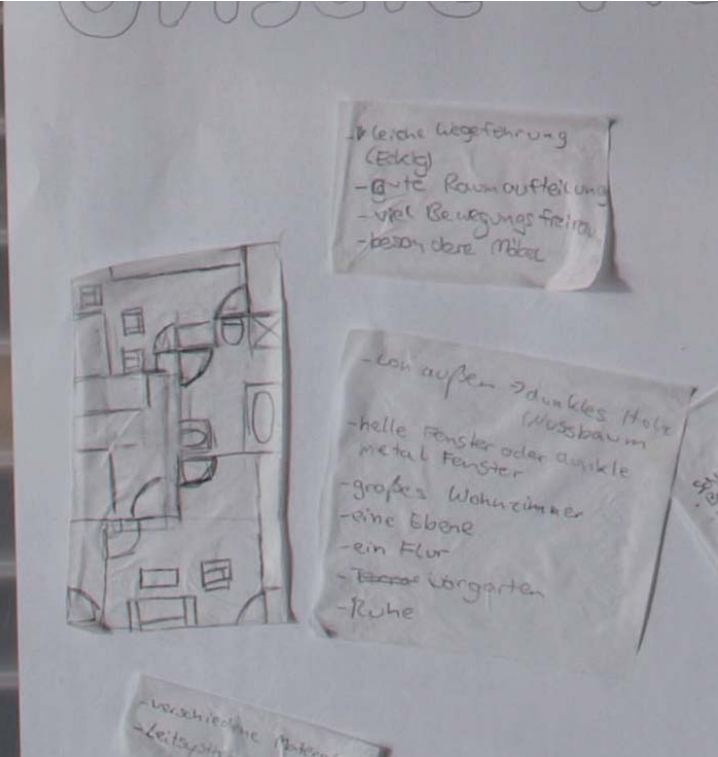 unsere
- leichte Wegeführung
(Eckig)
- gute Raumaufteilung
- viel Bewegungsfreirau
- besondere Möbel
- von außen → dunkles Holz
(Nussbaum
- helle Fenster oder dunkle
metal Fenster
- großes Wohnzimmer
- eine Ebene
- ein Flur
- Vorgarten
- Ruhe
- verschiedene Mater
- Leitsyst